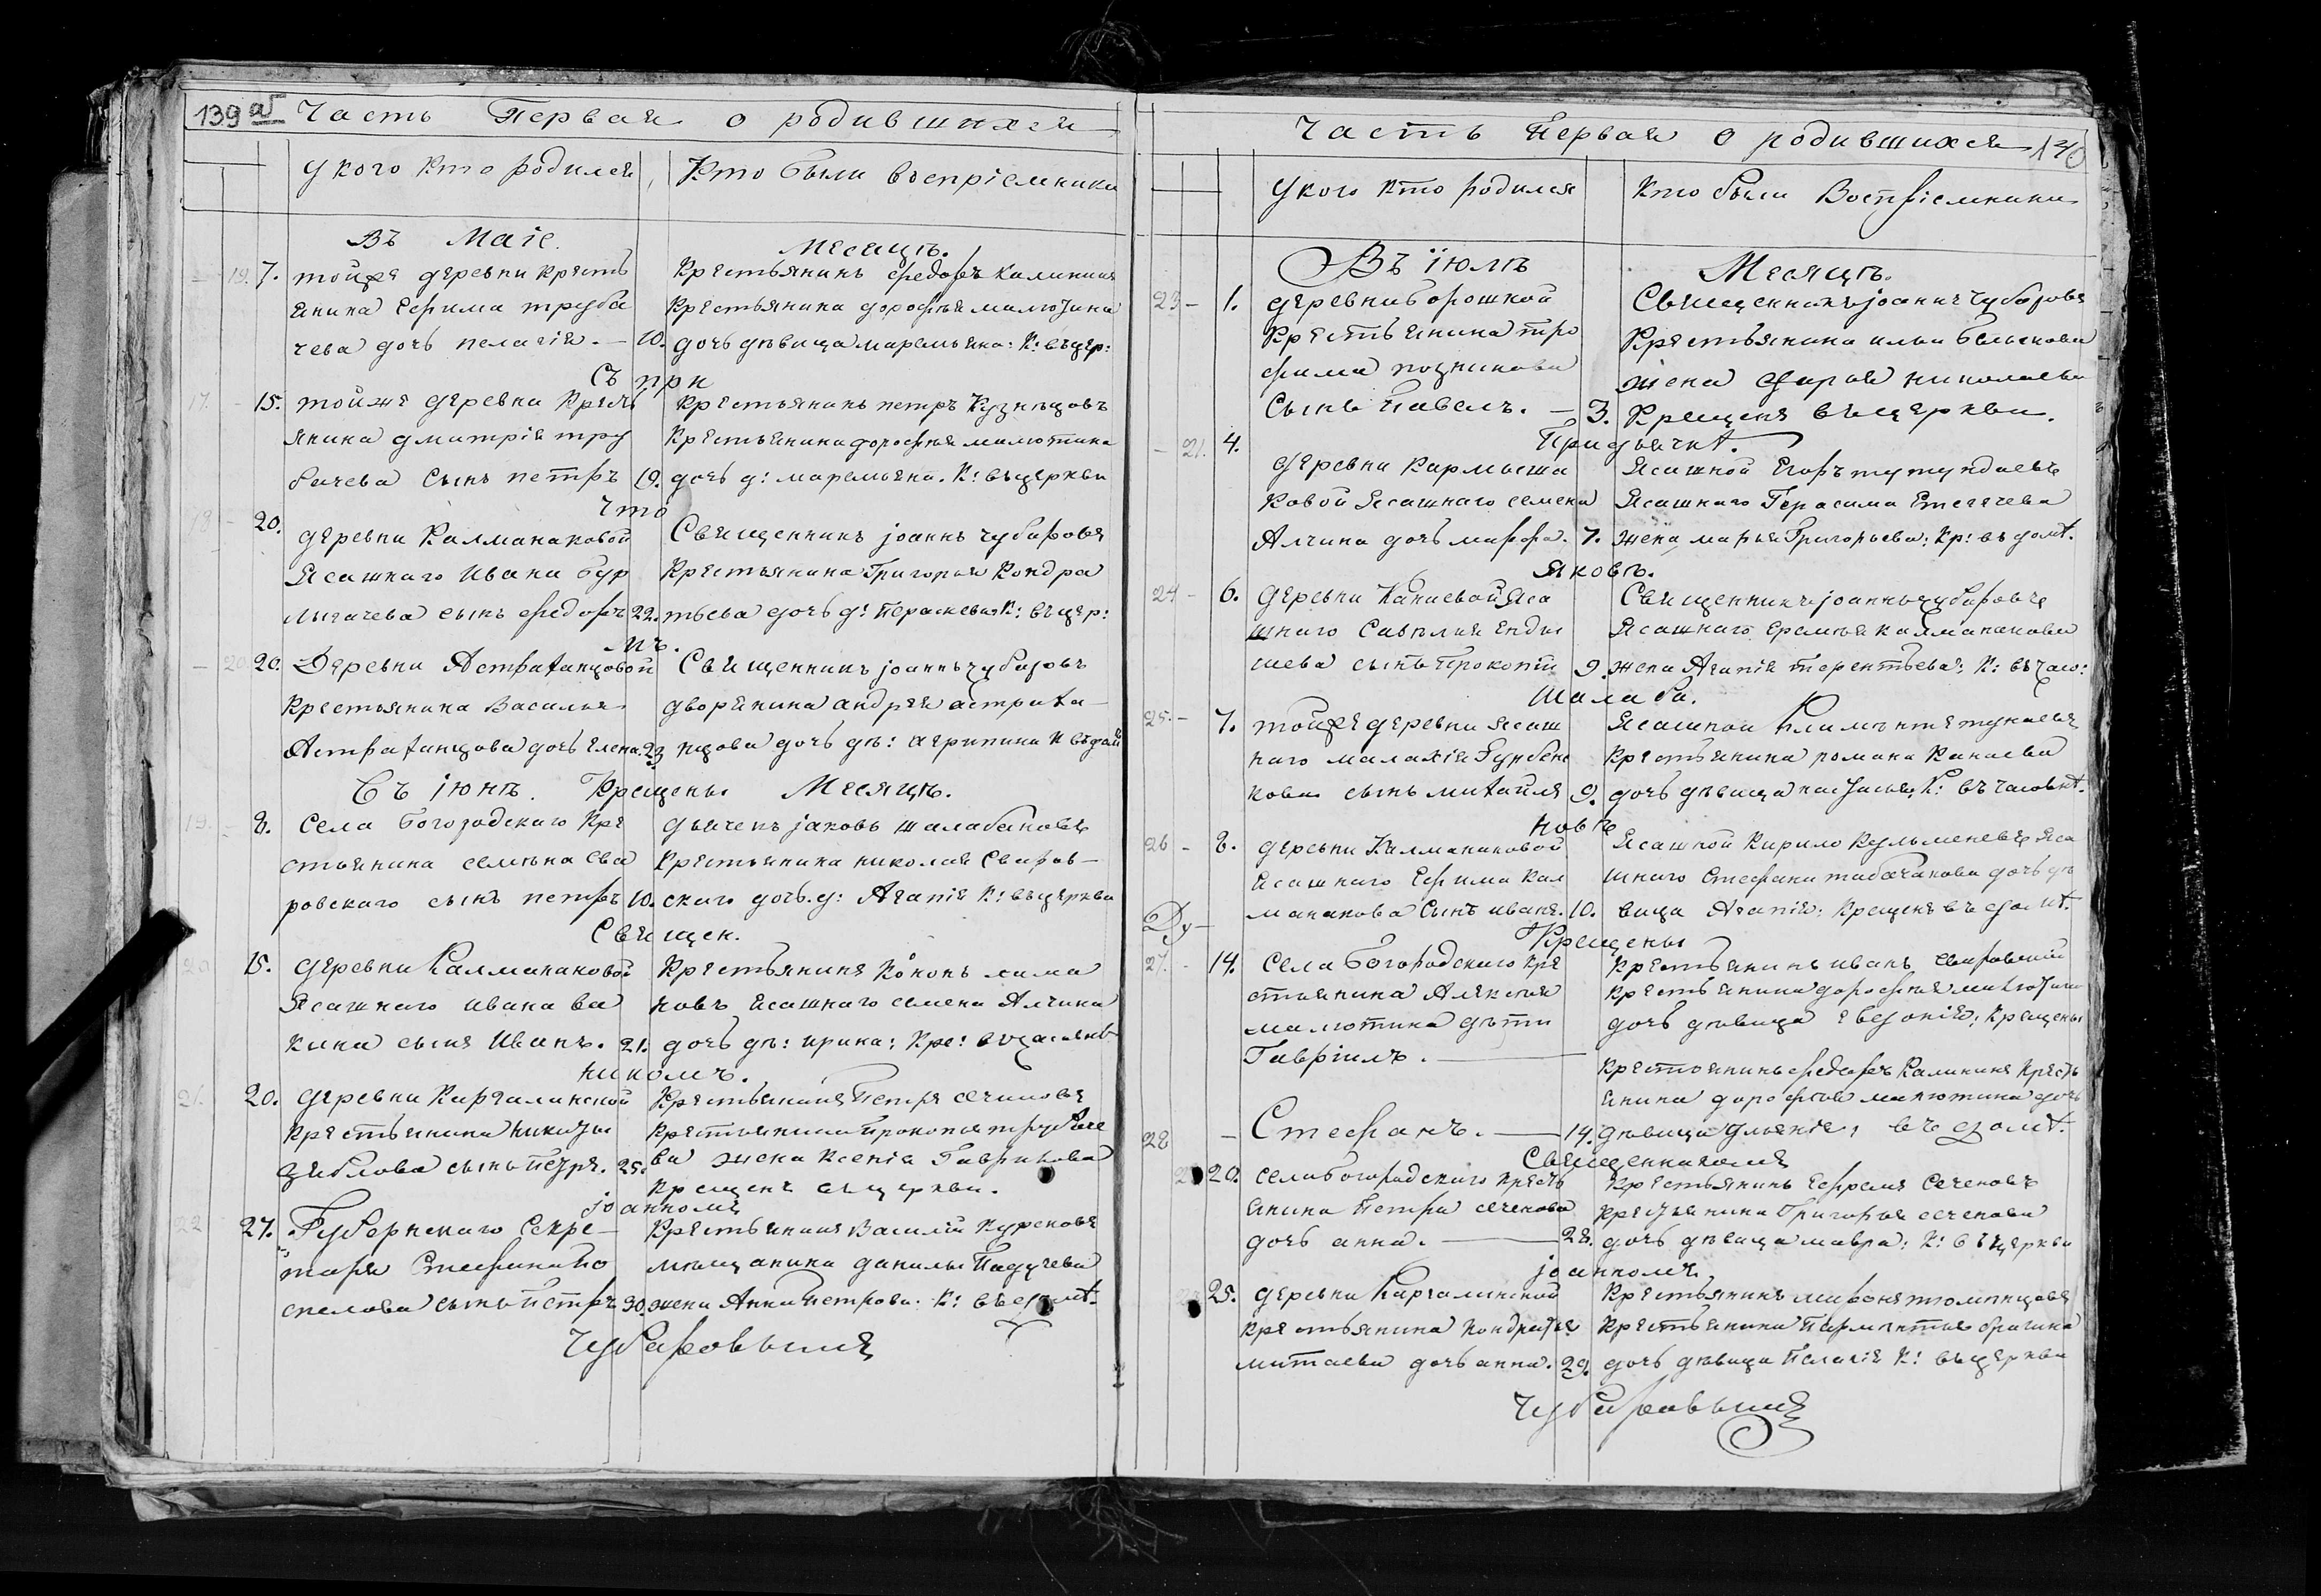 139 об
Часть Первая о родившихся
у кого кто родился
Кто были воспріемники
Въ Маіе
Месяцѣ.
19. 7. тойже деревни Кресть
янина Ефима труба
чева дочь пелагія. — 10.
Крестьянинъ федоръ Калининъ
Крестьянина дорофея милютина
дочь дѣвица маремьяна: К: въ цер:
Съ при
17. 15. тойже деревни Кресть
янина дмитрія тру
бачева Сынъ петръ 19.
Крестьянинъ петръ Кузнецовъ
Крестьянина дорофея милютина
дочь д: маремьяна. К: въ церкви
что
20. деревни Калмакаковой
Ясашнаго Ивана Бур
сынъ федоръ 22.
Священникъ јоаннъ чубаровъ
Крестьянина Григорья Кондра
тьева дочь д: Параскевия К: въ цер:
мъ.
20. 20. Деревни Астраханцовой
Крестьянина Василья
Астраханцова дочь Елена. 23
Священникъ јоаннъ чубаровъ
дворянина андрея астраха
нцова дочь дѣ: агрипина К въ дом
Въ іюнѣ. Крещены Месяцѣ.
19. 8. Села Богородскаго Кре
стьянина семена сви
ровскаго сынъ петръ 10.
дьячекъ јаковъ шалабановъ
Крестьянина николая Свиров—
скаго дочь. д: Агапія К: въ церкви
Священ.
20 15. деревни Калмакаковой
Ясашнаго ивана ва
кина сынъ Иванъ. 21.
Крестьянинъ Кононъ лима
новъ Ясашнаго семена Алчина
дочь дѣ: ирина: Кре: в часовнѣ
никомъ.
21. 20. деревни Каргалинской
Крестьянина никиты
сынъ петръ. 25.
Крестьянинъ Петръ сечиновъ
Крестьянина Прокопья трубаче
ва жена Ксенія Гаврилова
Крещенъ въ церкви.
јоанномъ
22 27. Губернскаго Секре—
таря Стефана По
спелова сынъ петръ 30.
Крестьянинъ Василій Куреновъ
мещанина данилы Падучева
жена Анна Петрова: К: въ домѣ.
Чубаровымъ
Часть Первая о родившихся 140
У кого кто родился
Кто были Воспріемники
Въ іюлѣ
Месяцѣ.
23 — 1. деревни Борошкой
Крестьянина тро
фима позникова
Сынъ Павелъ. — 3.
Священникъ јоаннъ чубаровъ
Крестьянина ильи Бельскова
жена дарья николаева
Крещенъ въ церкви.
При дьячкѣ.
— 21. 4. деревни Кармыша
ковой Ясашнаго семена
Алчина дочь марфа. 7.
Ясашной Егоръ тутундаевъ
Ясашнаго Герасима Етегачева
жена марья Григорьева: Кр: въ домѣ.
Яковъ.
24 — 6. деревни Канаевой Яса
шнаго Савелия Енды
шева сынъ Прокопій 9.
Священникъ јоаннъ чубаровъ
Ясашнаго Еремѣя калмакакова
жена Агапія терентьева: К: въ часо:
шалаба.
25. — 7. тойже деревни Ясаш
наго малахія Гурбена
кова сынъ михаилъ 9.
Ясашной Климъ
Крестьянина романа Канаева
дочь дѣвица настасья: К: въ часовнѣ.
новъ
26 — 8. деревни Калмакаковой
Ясашнаго Ефима Кал
манакова Сынъ иванъ. 10.
Ясашной Кирило Кульменевъ Яса
шнаго Стефана табачакова дочь дѣ
вица Агапія: Крещенъ въ домѣ.
Ду—
Крещены
27. — 14. Села Богородскаго Кре
стьянина Алексѣя
милютина дѣти
Гавріилъ.
Крестьянинъ иванъ свировскій
Крестьянина дорофея милютина
дочь дѣвица евдокія; Крещены
28 — Стефанъ. — 14.
Крестьянинъ федоръ Калининъ Кресть
янина дорофея милютина дочь
дѣвица Ульянія, въ домѣ.
Священникомъ
20. села Богородскаго Кресть
янина Петра сеченова
дочь анна. — 28.
Крестьянинъ Ефремъ Сеченовъ
Крестьянина Григорья сеченова
дочь дѣвица мавра: К: въ церкви
јоанномъ
25. деревни Каргалинской
Крестьянина Кондратья
митаева дочь анна. 29.
Крестьянинъ миронъ
Крестьянина Парментья брагина
дочь дѣвица Пелагія К: въ церкви
Чубаровымъ